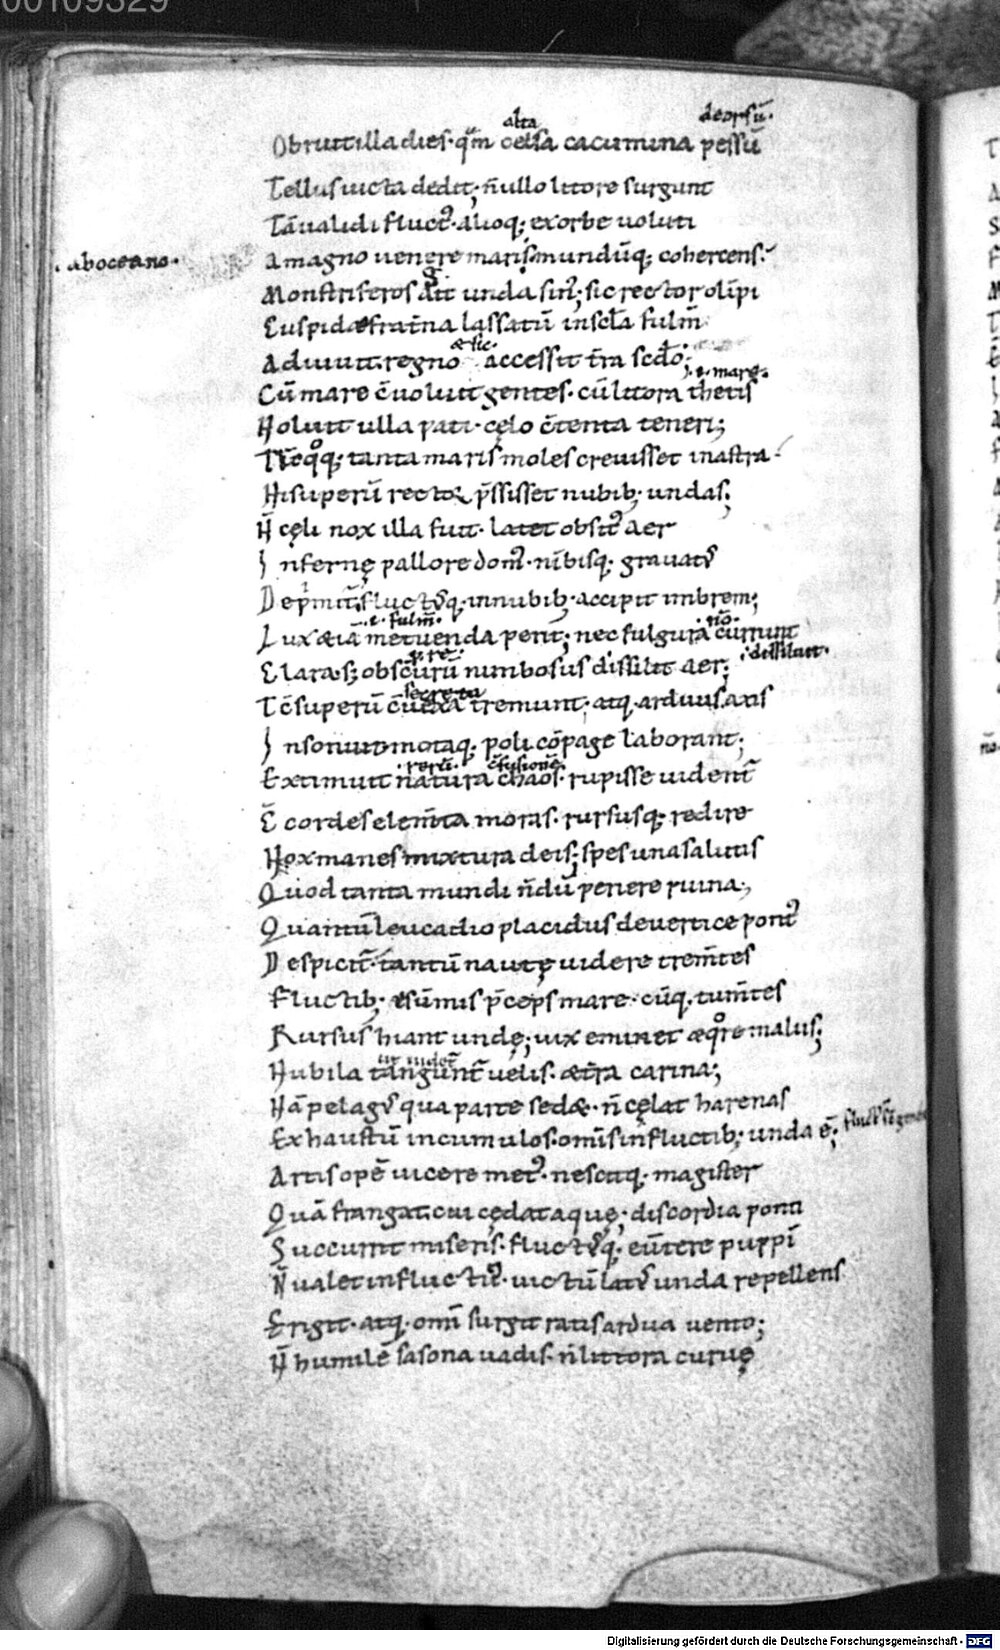 00109329
alta deorsū.
Obruit illa dies· qͣm celsa cacumina pessū
Tellus uicta dedit; n̄ ullo litore surgunt
Tā ualidi fluctꝰ· alioq; ex orbe uoluti
· ab oceano·
A magno uenere mari· mundūq; cohercens·
Monstriferos agit unda sinꝰ; sic rector olīpi
Cuspidæ frat̄na lassatū in sc̄la fulm̄
Adiuuit· regno accessit t̄ra sc̄do;
& sic·
.i. mare·
Cū mare c̄uoluit gentes· cū litora thetis
Noluit ulla pati· cęlo c̄tenta teneri;
Nc̄ qͦq; tanta maris moles creuisset in astra·
Ni superū rector p̄ssisset nubib; undas;
N̄ cęli nox illa fuit· latet obsitꝰ aer
Infernę pallore domꝰ· nībisq; grauatꝰ
Dep̄mit̄· fluctꝰq; in nubib; accipit imbrem;
.i. fulm̄· nō·
Lux æiā metuenda perit; nec fulgura currunt
p re· dissiluit·
Clara s; obscurū nimbosus dissilit aer;
secreta
Tc̄ superū c̄uexa tremunt· atq; arduus axis
Insonuit motaq; poli cōpage laborant;
·rerū· c̄fusionē·
Extimuit natura chaos· rupisse uident̄
C̄cordes elem̄ta moras· rursusq; redire
Nox manes mixtura deis; spes una salutis
Quod tanta mundi n̄dū periere ruina;
Quantū leucadio placidus de uertice pontꝰ
Despicit̄· tantū nautę uidere trem̄tes
Fluctib; e sūmis p̄ceps mare· cūq; tum̄tes
Rursus hiant undę; uix eminet æqͦre malus;
ut uidet̄
Nubila tangunt̄ uelis· æt̄ra carina;
Nā pelagꝰ qua parte sedæ· n̄ cęlat harenas
Exhaustū in cumulos· omīs in fluctib; unda ē;
Artis opē uicere metꝰ· nescitq; magister
Quā frangat· cui cędat aquę; discordia ponti
Succurrit miseris· fluctꝰq; eūtere puppī
N̄ ualet in fluctꝰ· uictū latꝰ unda repellens
Erigit· atq; omī surgit ratis ardua uento;
N̄ humilē sasona uadis· n̄ littora curuę
Digitalisierung gefördert durch die Deutsche Forschungsgemeinschaft - DFG